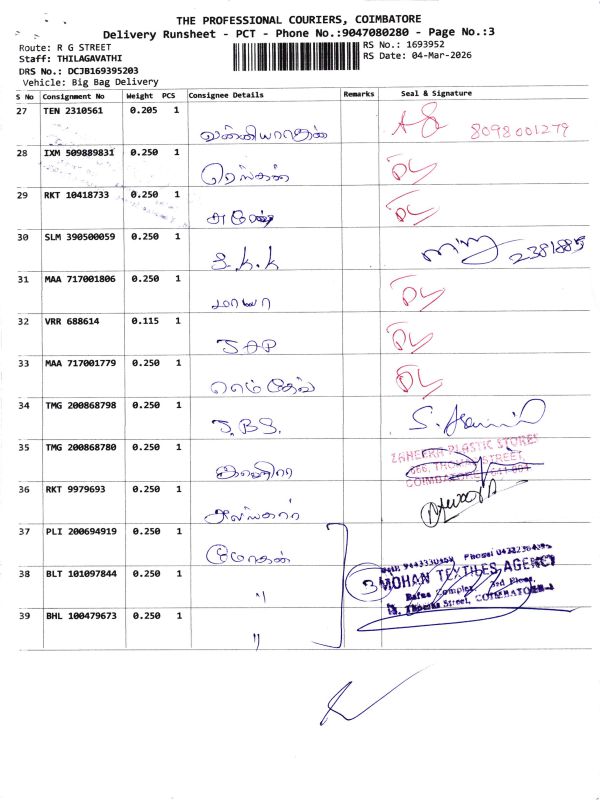 THE PROFESSIONAL COURIERS, COIMBATORE
Delivery Runsheet - PCT - Phone No.:9047080280 - Page No.:3
Route: R G STREET
RS No.: 1693952
Staff: THILAGAVATHI
RS Date: 04-Mar-2026
DRS No.: DCJB169395203
Vehicle: Big Bag Delivery
S No Consignment No Weight PCS Consignee Details Remarks Seal & Signature
27 TEN 2310561 0.205 1
8098001279
28 IXM 509889831 0.250 1
29 RKT 10418733 0.250 1
30 SLM 390500059 0.250 1
S.K.K 2381885
31 MAA 717001806 0.250 1
மாயா
32 VRR 688614 0.115 1
33 MAA 717001779 0.250 1
34 TMG 200868798 0.250 1
J.B.S.
35 TMG 200868780 0.250 1
ZAHEERA PLASTIC STORES
THOMAS STREET,
COIMBATORE - 641 001
36 RKT 9979693 0.250 1
37 PLI 200694919 0.250 1
மோகன்
38 BLT 101097844 0.250 1
"
3 MOHAN TEXTILES AGENCY
Complex, 3rd Floor,
Thomas Street, COIMBATORE-1
39 BHL 100479673 0.250 1
"